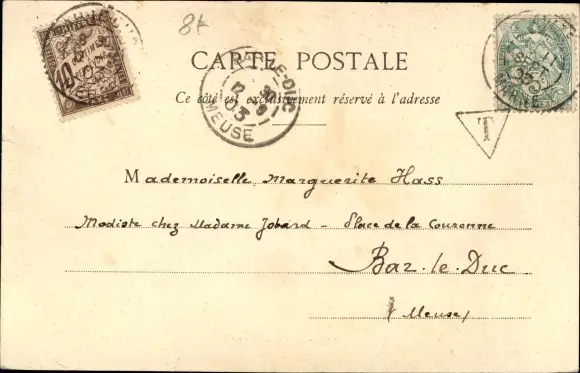 8f
CARTE POSTALE
Ce côté est exclusivement réservé à l'adresse
BAR-LE-DUC
12
03
MEUSE
MARNE
T
Mademoiselle Marguerite Hass
Modiste chez Madame Jobard - Place de la Couronne
Bar-le-Duc
(Meuse)